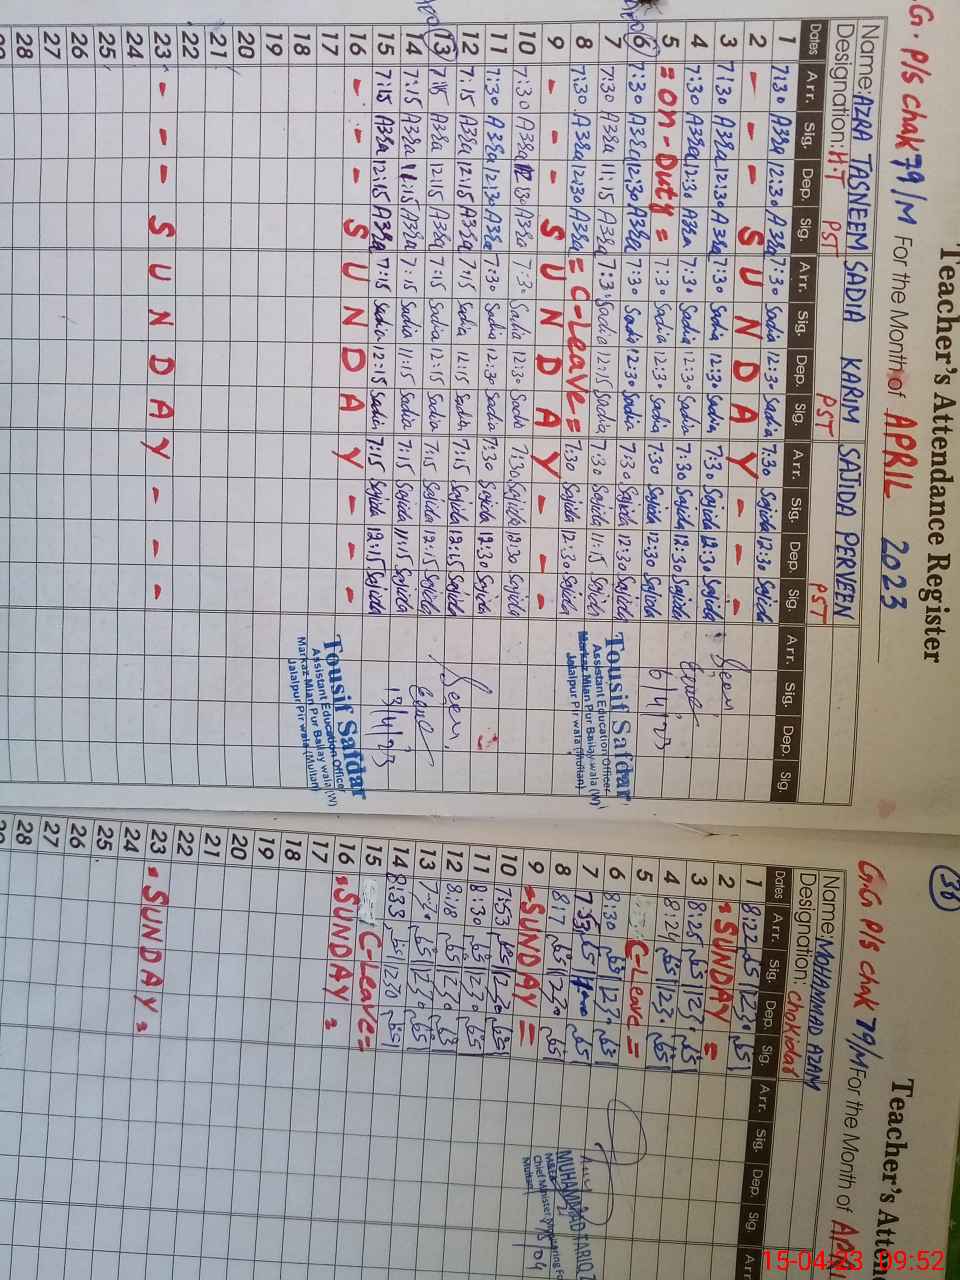 Teacher's Attendance Register
G. P/s chak 79/M For the Month of APRIL 2023
Name: AZRA TASNEEM SADIA KARIM SAJIDA PERVEEN
Designation: H.T PST PST PST
Dates Arr. Sig. Dep. Sig. Arr. Sig. Dep. Sig. Arr. Sig. Dep. Sig. Arr. Sig. Dep. Sig.
1 7:30 Azra 12:30 Azra 7:30 Sadia 12:30 Sadia 7:30 Sajida 12:30 Sajida
2 - - - S U N D A Y - - -
3 7:30 Azra 12:30 Azra 7:30 Sadia 12:30 Sadia 7:30 Sajida 12:30 Sajida
4 7:30 Azra 12:30 Azra 7:30 Sadia 12:30 Sadia 7:30 Sajida 12:30 Sajida
5 = on-Duty = 7:30 Sadia 12:30 Sadia 7:30 Sajida 12:30 Sajida
6 7:30 Azra 12:30 Azra 7:30 Sadia 12:30 Sadia 7:30 Sajida 12:30 Sajida
7 7:30 Azra 11:15 Azra 7:3 Sadia 12:15 Sadia 7:30 Sajida 11:15 Sajida
8 7:30 Azra 12:30 Azra = C-Leave = 7:30 Sajida 12:30 Sajida
9 - - - S U N D A Y - - -
10 7:30 Azra 12:30 Azra 7:30 Sadia 12:30 Sadia 7:30 Sajida 12:30 Sajida
11 7:30 Azra 12:30 Azra 7:30 Sadia 12:30 Sadia 7:30 Sajida 12:30 Sajida
12 7:15 Azra 12:15 Azra 7:15 Sadia 12:15 Sadia 7:15 Sajida 12:15 Sajida
13 7:15 Azra 12:15 Azra 7:15 Sadia 12:15 Sadia 7:15 Sajida 12:15 Sajida
14 7:15 Azra 11:15 Azra 7:15 Sadia 11:15 Sadia 7:15 Sajida 11:15 Sajida
15 7:15 Azra 12:15 Azra 7:15 Sadia 12:15 Sadia 7:15 Sajida 12:15 Sajida
16 - - - S U N D A Y - - -
17
18
19
20
21
22
23 - - - S U N D A Y - - -
24
25
26
27
28
Seen
6/4/23
Tousif Safdar
Assistant Education Officer
Markaz Mian Pur Bailay wala (W)
Jalalpur Pirwala (Multan)
Seen
13/4/23
Tousif Safdar
Assistant Education Officer
Markaz Mian Pur Bailay wala (W)
Jalalpur Pirwala (Multan)
38
Teacher's Atten
G.G P/s chak 79/M For the Month of APRI
Name: MOHAMMAD AZAM
Designation: Chokidar
Dates Arr. Sig. Dep. Sig. Arr. Sig. Dep. Sig. Arr
1 8:22 1230
2 = SUNDAY =
3 8:25 1230
4 8:24 1230
5 C-Leave =
6 8:30 1230
7 7:55
8 8:17 1230
9 = SUNDAY =
10 7:53 1230
11 8:30 1230
12 8:18 1230
13 1230
14 8:33 1230
15 C-Leave =
16 = SUNDAY =
17
18
19
20
21
22
23 = SUNDAY =
24
25
26
27
28
MUHAMMAD TARIQ
Chief Minister
Multan
15-04-23 09:52